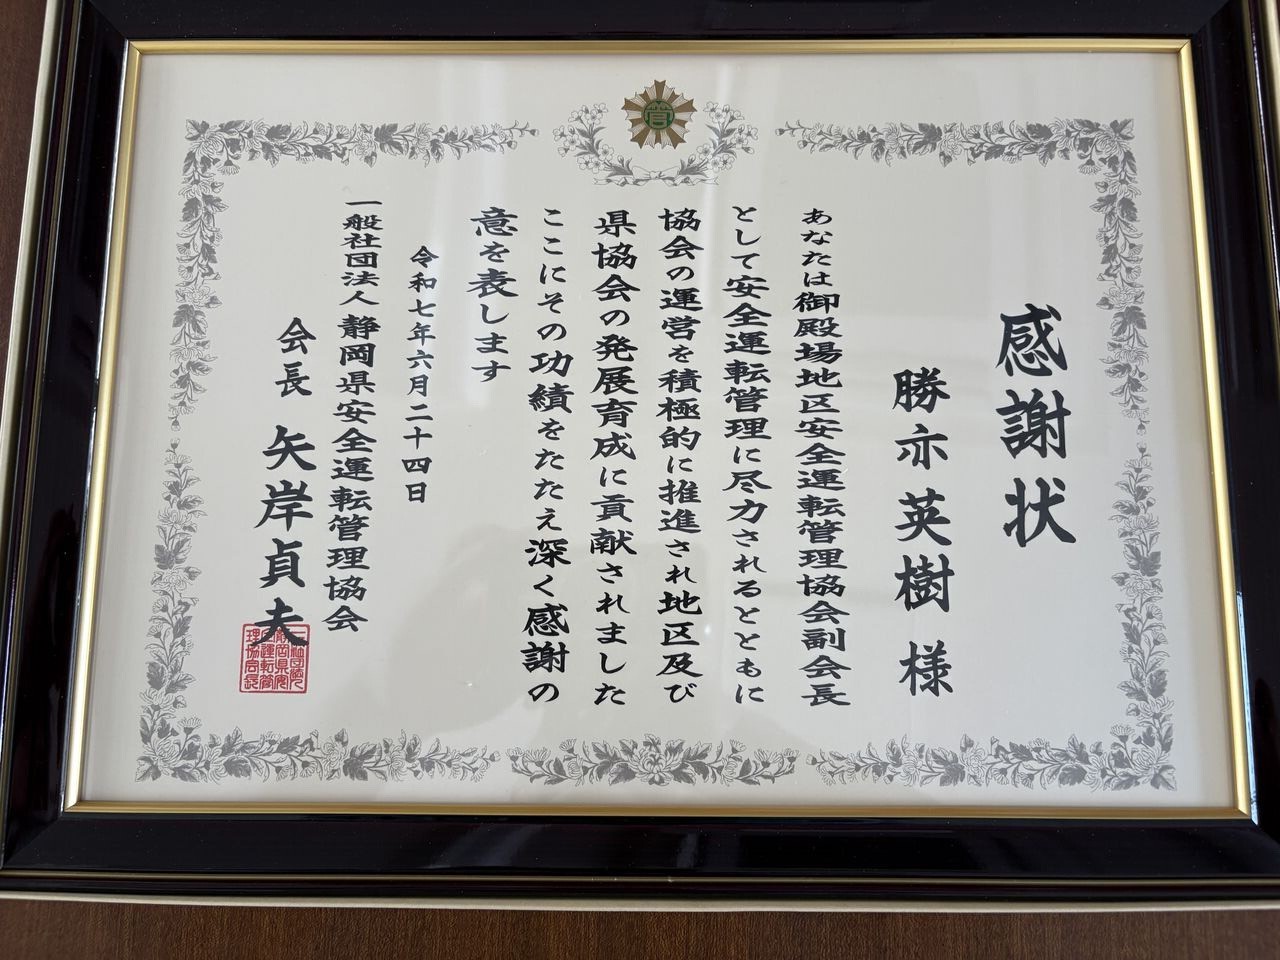 感謝状
勝亦英樹様
あなたは御殿場地区安全運転管理協会副会長
として安全運転管理に尽力されるとともに
協会の運営を積極的に推進され地区及び
県協会の発展育成に貢献されました
ここにその功績をたたえ深く感謝の
意を表します
令和七年六月二十四日
一般社団法人静岡県安全運転管理協会
会長 矢岸貞夫